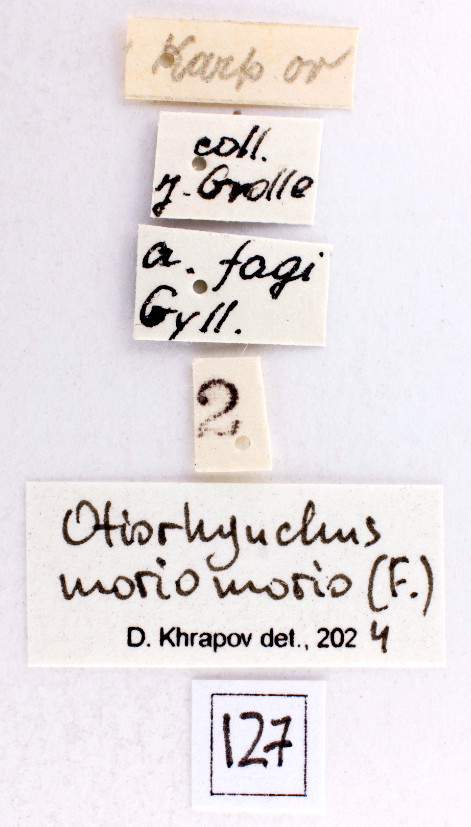 Karp or
coll.
J. Grolle
a. fagi
Gyll.
2
Otiorhynchus
morio morio (F.)
D. Khrapov det., 2024
127